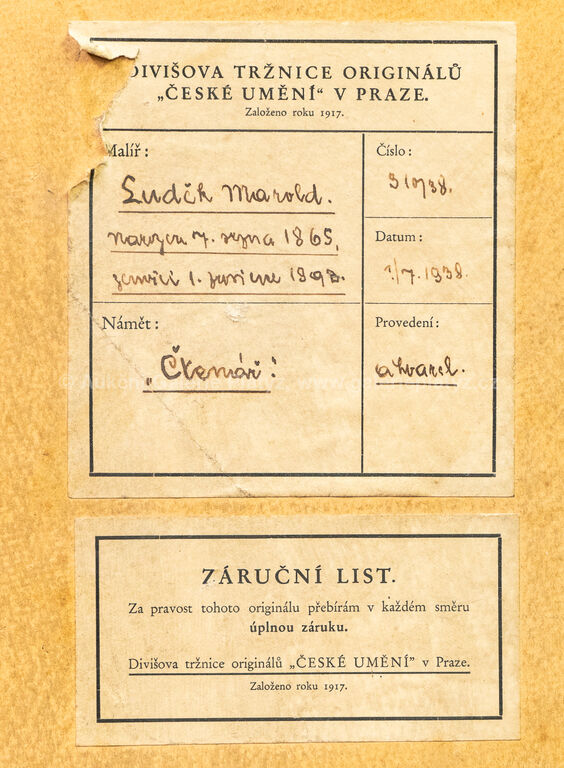 DIVIŠOVA TRŽNICE ORIGINÁLŮ
„ČESKÉ UMĚNÍ“ V PRAZE.
Založeno roku 1917.
Malíř:
Luděk Marold.
narozen 7. srpna 1865,
zemřel 1. 1898.
Námět:
„Čtenář“
Číslo:
310/38.
Datum:
/7.1938.
Provedení:
akvarel.
ZÁRUČNÍ LIST.
Za pravost tohoto originálu přebírám v každém směru
úplnou záruku.
Divišova tržnice originálů „ČESKÉ UMĚNÍ” v Praze.
Založeno roku 1917.